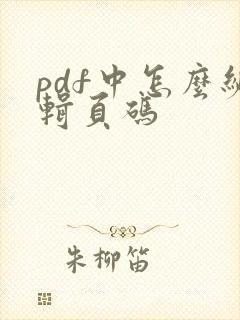 pdf中怎麼編
輯頁碼
朱柳笛